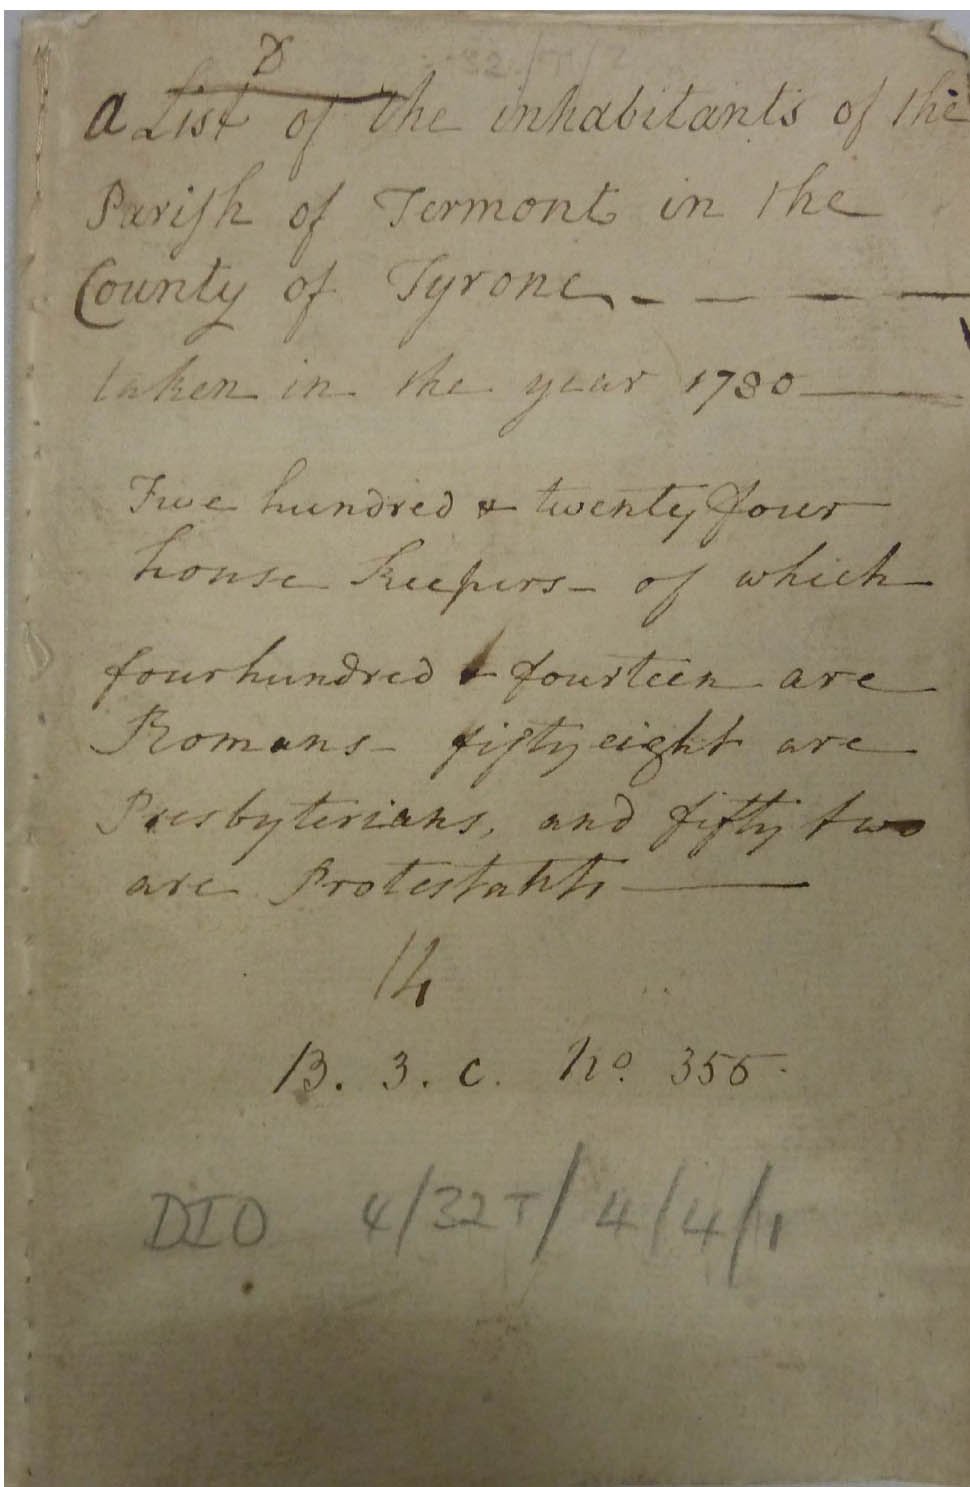 a List of the inhabitants of the
Parish of Termont in the
County of Tyrone
taken in the year 1780
Five hundred & twenty four
house keepers - of which
four hundred & fourteen are
Romans - fifty eight are
Presbyterians, and fifty two
are Protestants
14
B. 3. C. No. 355.
DIO 4/32T/4/4/1